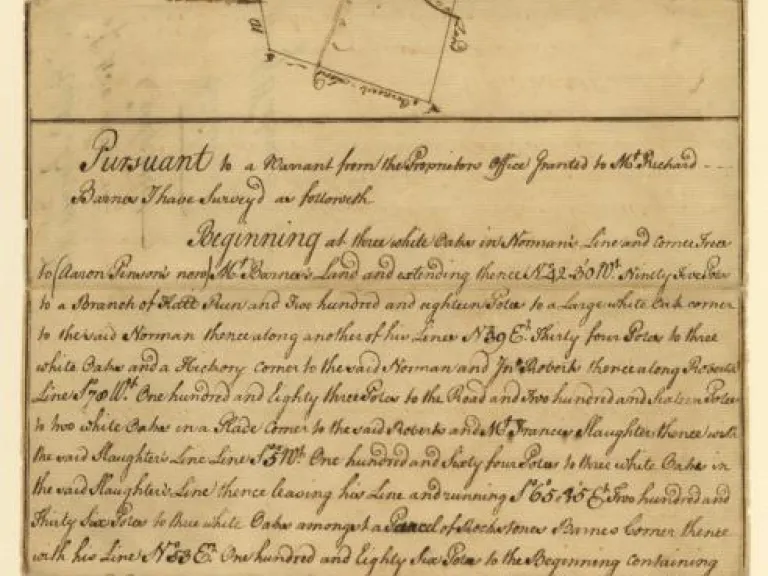 Pursuant to a Warrant from the Proprietors Office Granted to Mr. Richard
Barnes I have Survey'd as followeth
Beginning at three white Oaks in Norman's Line and corner Trees
to (Aaron Penson's now) Mr. Barnes's Land and extending thence No. 42.30 Wt. Ninety Five Poles
to a Branch of Run and Two hundred and eighteen Poles to a Large white Oak corner
to the said Norman thence along another of his Lines N39 Et. Thirty four Poles to three
white Oaks and a Hickory corner to the said Norman and Jno. Roberts thence along Roberts's
Line So. 78 Wt. One hundred and Eighty three Poles to the Road and Two hundred and Sixteen Poles
to two white Oaks in a Glade Corner to the said Roberts and Mr. Frances Slaughter thence with
the said Slaughter's Line Line So. 5 Wt. One hundred and Sixty four Poles to three white Oaks in
the said Slaughter's Line thence leaving his Line and running So. 65.35 Et. Two hundred and
Thirty Six Poles to three white Oaks amongst a Parcel of Rock stones Barnes Corner thence
with his Line No. 53 Et. One hundred and Eighty Six Poles to the Beginning containing